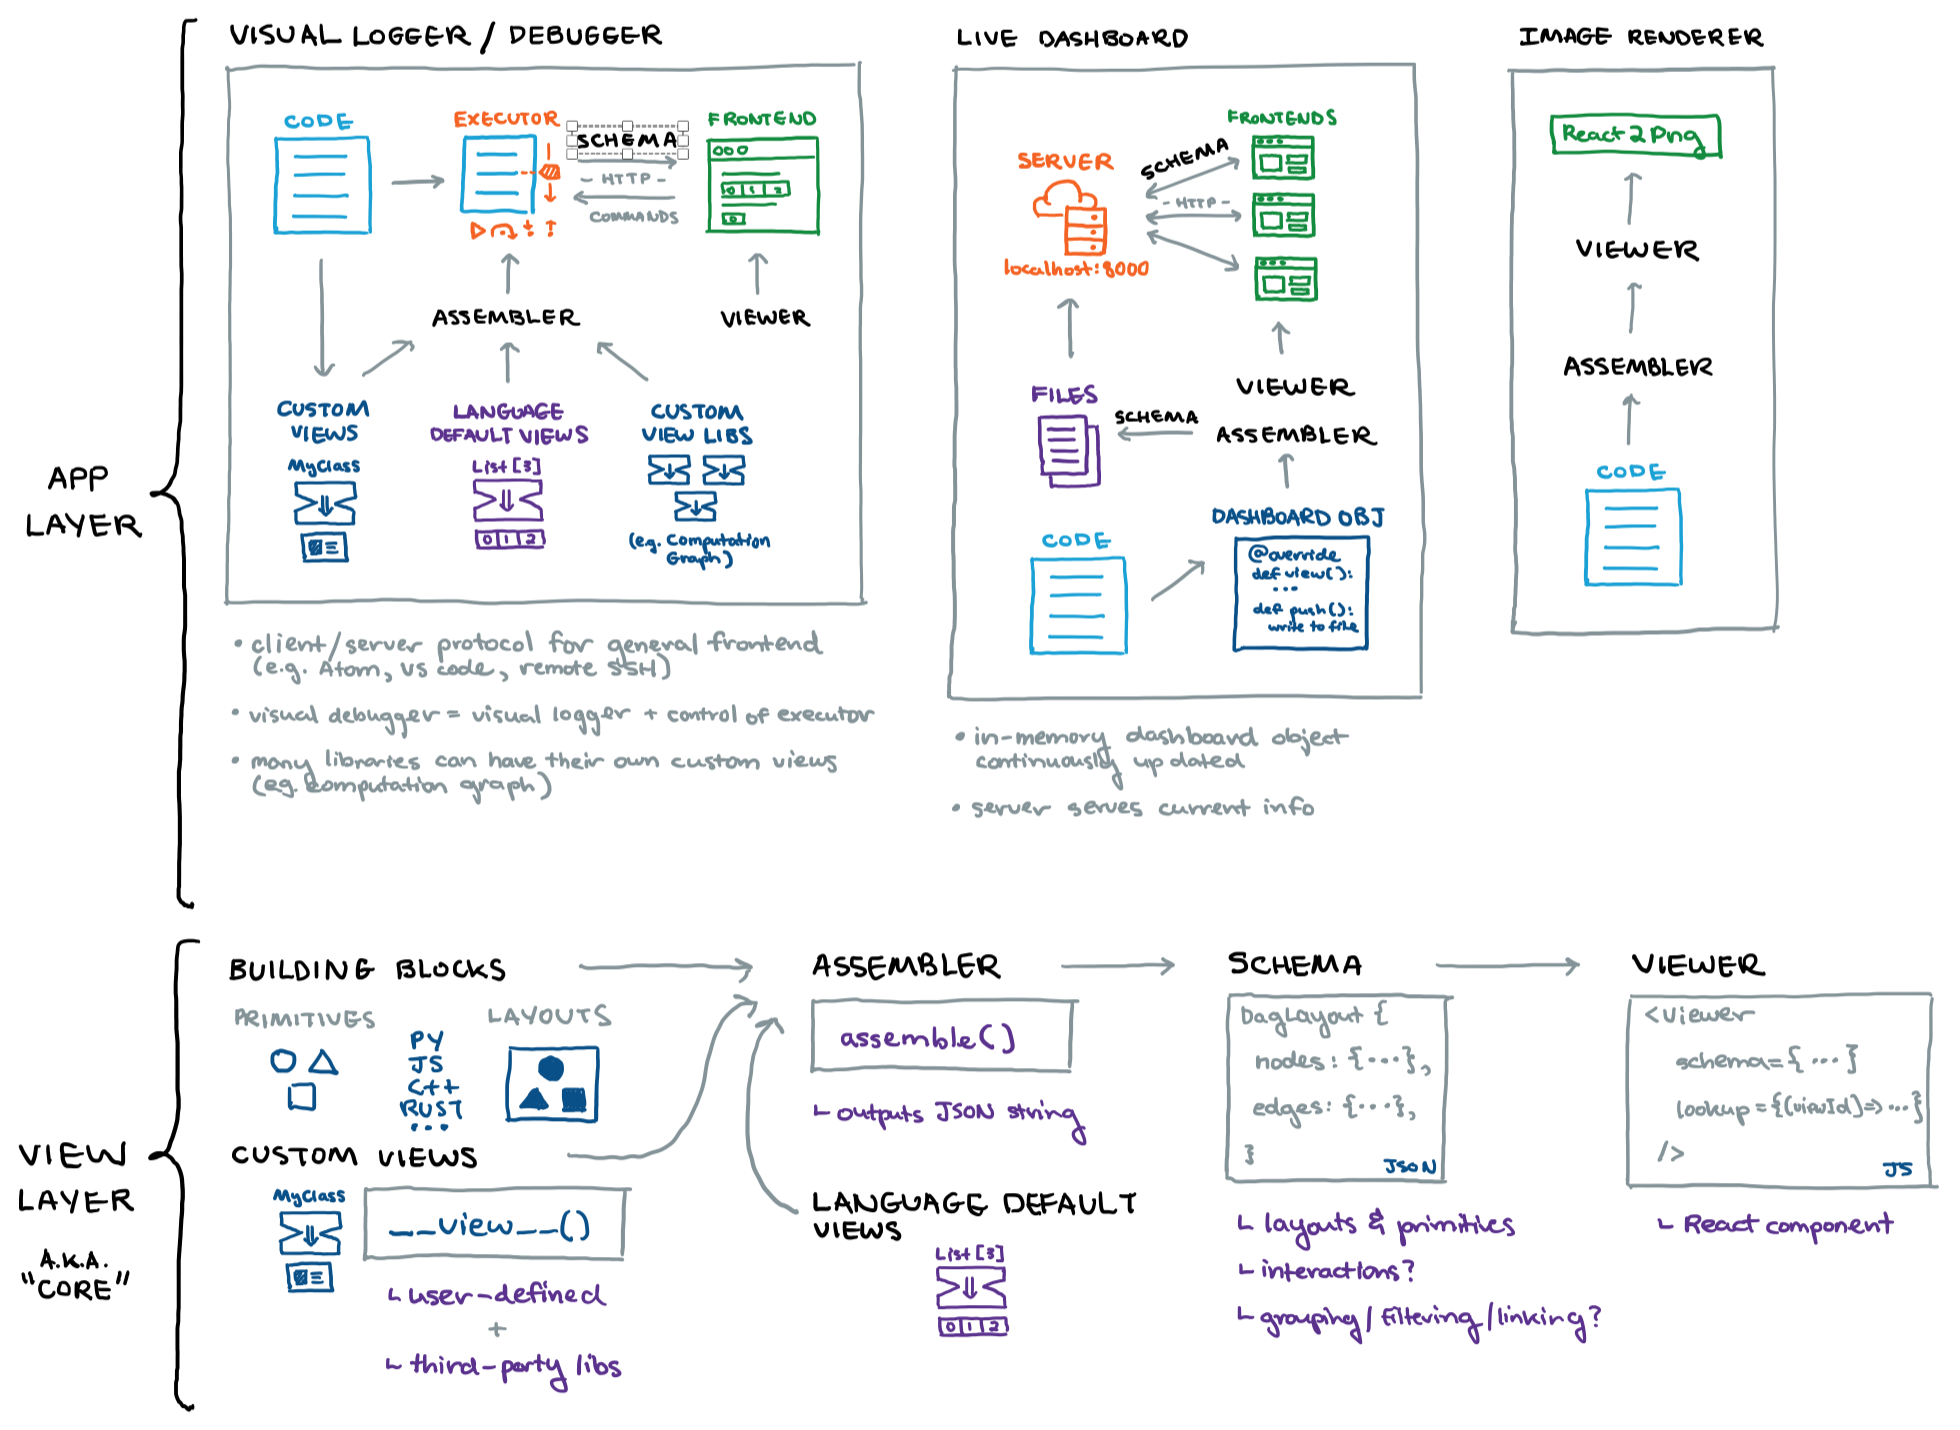 VISUAL LOGGER / DEBUGGER
CODE
EXECUTOR
SCHEMA
- HTTP -
COMMANDS
FRONTEND
0 1 2
0
ASSEMBLER
VIEWER
CUSTOM
VIEWS
MyClass
LANGUAGE
DEFAULT VIEWS
List [3]
0 1 2
CUSTOM
VIEW LIBS
(e.g. Computation
Graph)
• client/server protocol for general frontend
(e.g. Atom, VS code, remote SSH)
• visual debugger = visual logger + control of executor
• many libraries can have their own custom views
(e.g. computation graph)
LIVE DASHBOARD
SERVER
localhost:8000
SCHEMA
- HTTP -
FRONTENDS
FILES
SCHEMA
VIEWER
ASSEMBLER
CODE
DASHBOARD OBJ
@override
def view():
...
def push():
write to file
• in-memory dashboard object
continuously updated
• server serves current info
IMAGE RENDERER
React2Png
VIEWER
ASSEMBLER
CODE
APP
LAYER
VIEW
LAYER
A.K.A.
"CORE"
BUILDING BLOCKS
PRIMITIVES
PY
JS
C++
RUST
...
LAYOUTS
CUSTOM VIEWS
MyClass
__view__()
user-defined
+
third-party libs
ASSEMBLER
assemble()
outputs JSON string
LANGUAGE DEFAULT
VIEWS
List [3]
0 1 2
SCHEMA
DagLayout {
nodes: {...},
edges: {...},
}
JSON
layouts & primitives
interactions?
grouping/filtering/linking?
VIEWER
<Viewer
schema={...}
lookup={(viewId)=>...}
/>
JS
React component